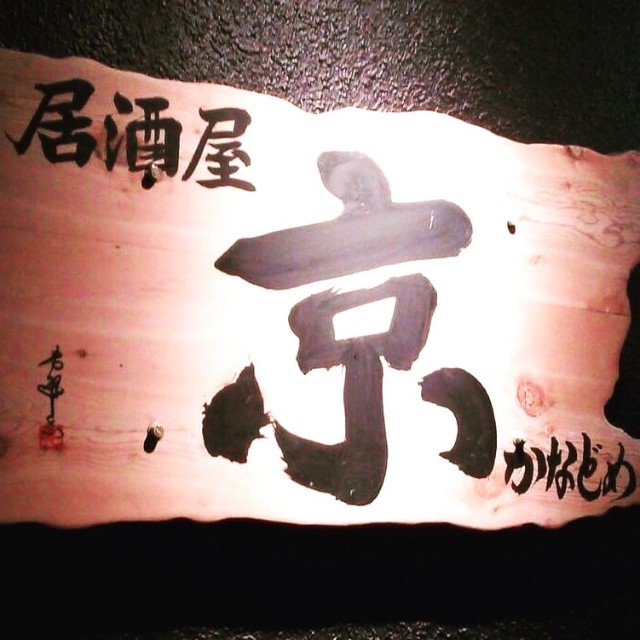 居酒屋
京
かなどめ